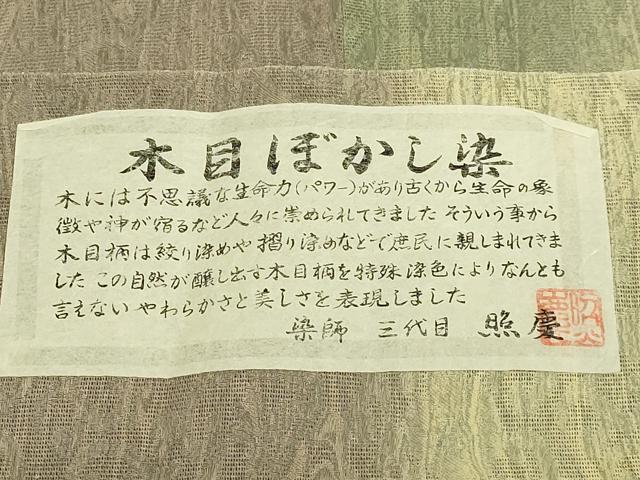 木目ぼかし染
木には不思議な生命力(パワー)があり古くから生命の象
徴や神が宿るなど人々に崇められてきました そういう事から
木目柄は絞り染めや摺り染めなどで庶民に親しまれてきま
した この自然が醸し出す木目柄を特殊染色によりなんとも
言えないやわらかさと美しさを表現しました
染師 三代目 照慶